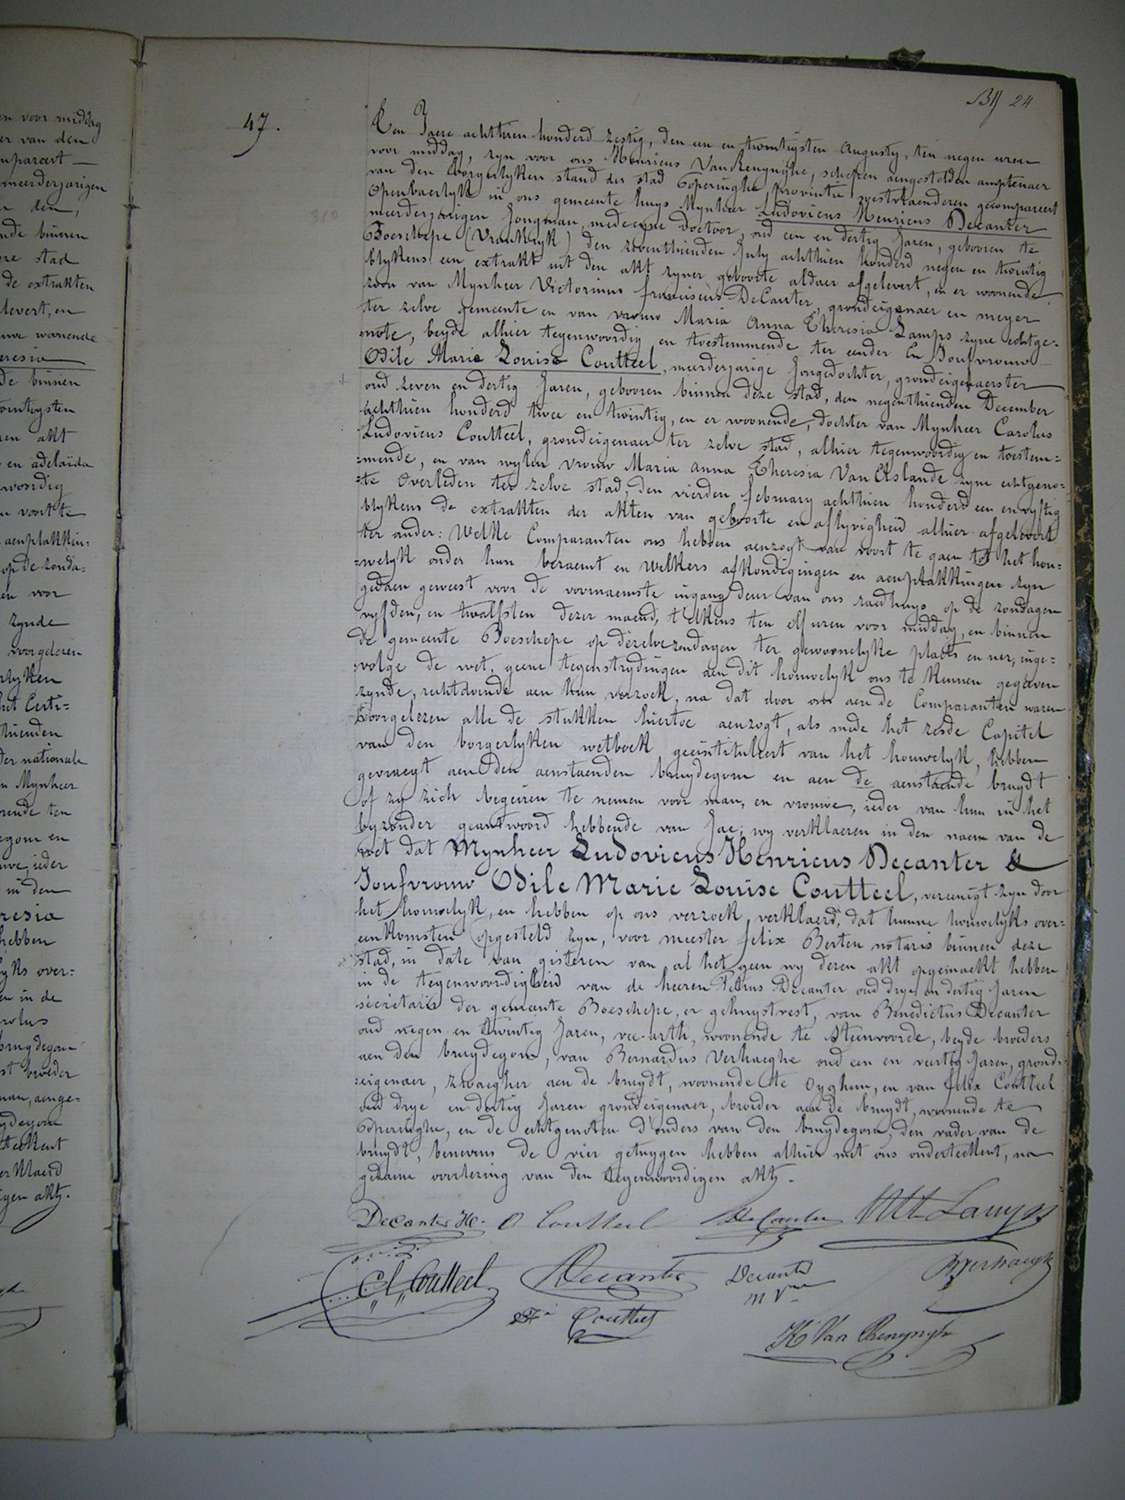 en voor middag
er van den
mpareert
meerderjarigen
den,
nde binnen
stad
de extrakten
levert, en
wonende
heresia
de binnen
twintigsten
akt
en adelaïda
woordig
voorkte
aenplakkin:
op de zonda:
en voor
zynde
voorgelezen
rlyken
het Certi:
thienden
der nationale
n Mynheer
rende ten
egom en
ieder
in den
resia
hebben
lyks over:
en in de
rolus
bruydegom
broeder
man, aenge:
ydegom
teekent
verklaerd
igen akt.
B 24
47.
Den Jaere achttien honderd zestig, den een en twintigsten Augusty, ten negen uren
voor middag, zyn voor ons Henricus VanRenynghe, schepen aengestelden amptenaer
van den borgerlyken stand der stad Poperinghe, provintie westvlaenderen gecompareert
openbaerlyk in ons gemeente huys Mynheer Ludovicus Henricus Decanter
meerderjarigen Jongman medecyne doctoor, oud een en dertig Jaren, geboren te
Boeschepe (Vrankryk) den zeventhienden July achthien honderd negen en twintig
blykens een extrakt uit den akt zyner geboorte aldaer afgelevert, en er woonende
zoon van Mynheer Victorinus franciscus DeCanter, grondeigenaer en meyer
ter zelve gemeente en van vrouw Maria Anna Theresia Lamps zyne echtge-
note, beyde alhier tegenwoordig en toestemmende ter eender En Joufvrouw
Odile Marie Louise Coutteel, meerderjarige Jongedochter, grondeigenaerster
oud zeven en dertig Jaren, gebooren binnen deze stad, den negenthienden December
achthien honderd twee en twintig, en er woonende, dochter van Mynheer Carolus
Ludovicus Coutteel, grondeigenaer ter zelve stad, alhier tegenwoordig en toestem:
:mende, en van wylen vrouw Maria anna Theresia Van Elslande zyne echtgeno:
:te overleden ter zelve stad, den vierden february achthien honderd een en vyftig
blykens de extrakten der akten van geboorte en aflyvigheid alhier afgelevert
ter ander: Welke Comparanten ons hebben aenzogt van voort te gaen tot het hou:
:welyk onder hun beraemt en welkers afkondigingen en aenplakkingen zyn
gedaen geweest voor de voornaemste ingang deur van ons raedhuys op de zondagen
vyfden, en twalfsten dezer maend, telkens ten elf uren voor middag, en binnen
de gemeente Boeschepe op dezelve zondagen ter gewoonelyke plaets en uer, inge:
:volge de wet, geene tegenstrydingen aen dit houwelyk ons te kennen gegeven
zynde, rechtdoende aen hun verzoek, na dat door ons aen de Comparanten waren
voorgelezen alle de stukken hiertoe aenzogt, als mede het zesde Capitel
van den borgerlyken wetboek geïntituleert van het houwelyk, hebben
gevraegt aen den aenstaenden bruydegom en aen de aenstaende bruydt
of zy zich begeiren te nemen voor man, en vrouwe, ieder van hun in het
byzonder geantwoord hebbende van Jae; wy verklaeren in den naem van de
wet dat Mynheer Ludovicus Henricus Decanter &
Joufvrouw Odile Marie Louise Coutteel, vereenigt zyn door
het houwelyk, en hebben op ons verzoek verklaerd, dat hunne houwelyks over-
eenkomsten opgesteld zyn, voor meester felix Berten notaris binnen deze
stad, in date van gisteren van al het geen wy dezen akt opgemaekt hebben
in de tegenwoordigheid van de heeren Petrus Decanter oud drye en dertig Jaren
secretaris der gemeente Boeschepe, er gehuystvest, van Benedictus Decanter
oud negen en twintig Jaren, vee-arth, woonende te Steenvoorde, beyde broeders
aen den bruydegom, van Bernardus Verhaeghe oud een en veertig Jaren, grond:
:eigenaer, zwaegher aen de bruydt, woonende te Oyghem, en van felix Coutteel
oud drye en dertig Jaren grondeigenaer, broeder aen de bruydt, woonende te
Poperinghe, en de echtgenoten d'ouders van den bruydegom, den vader van de
bruydt, benevens de vier getuygen hebben alhier met ons onderteekent, na
gedaene voorlezing van den tegenwoordigen akt.
Decanter H. O Coutteel DeCanter Lamps
C L Coutteel Decanter Decanter BVerhaeghe
Coutteel
H Van Renynghe